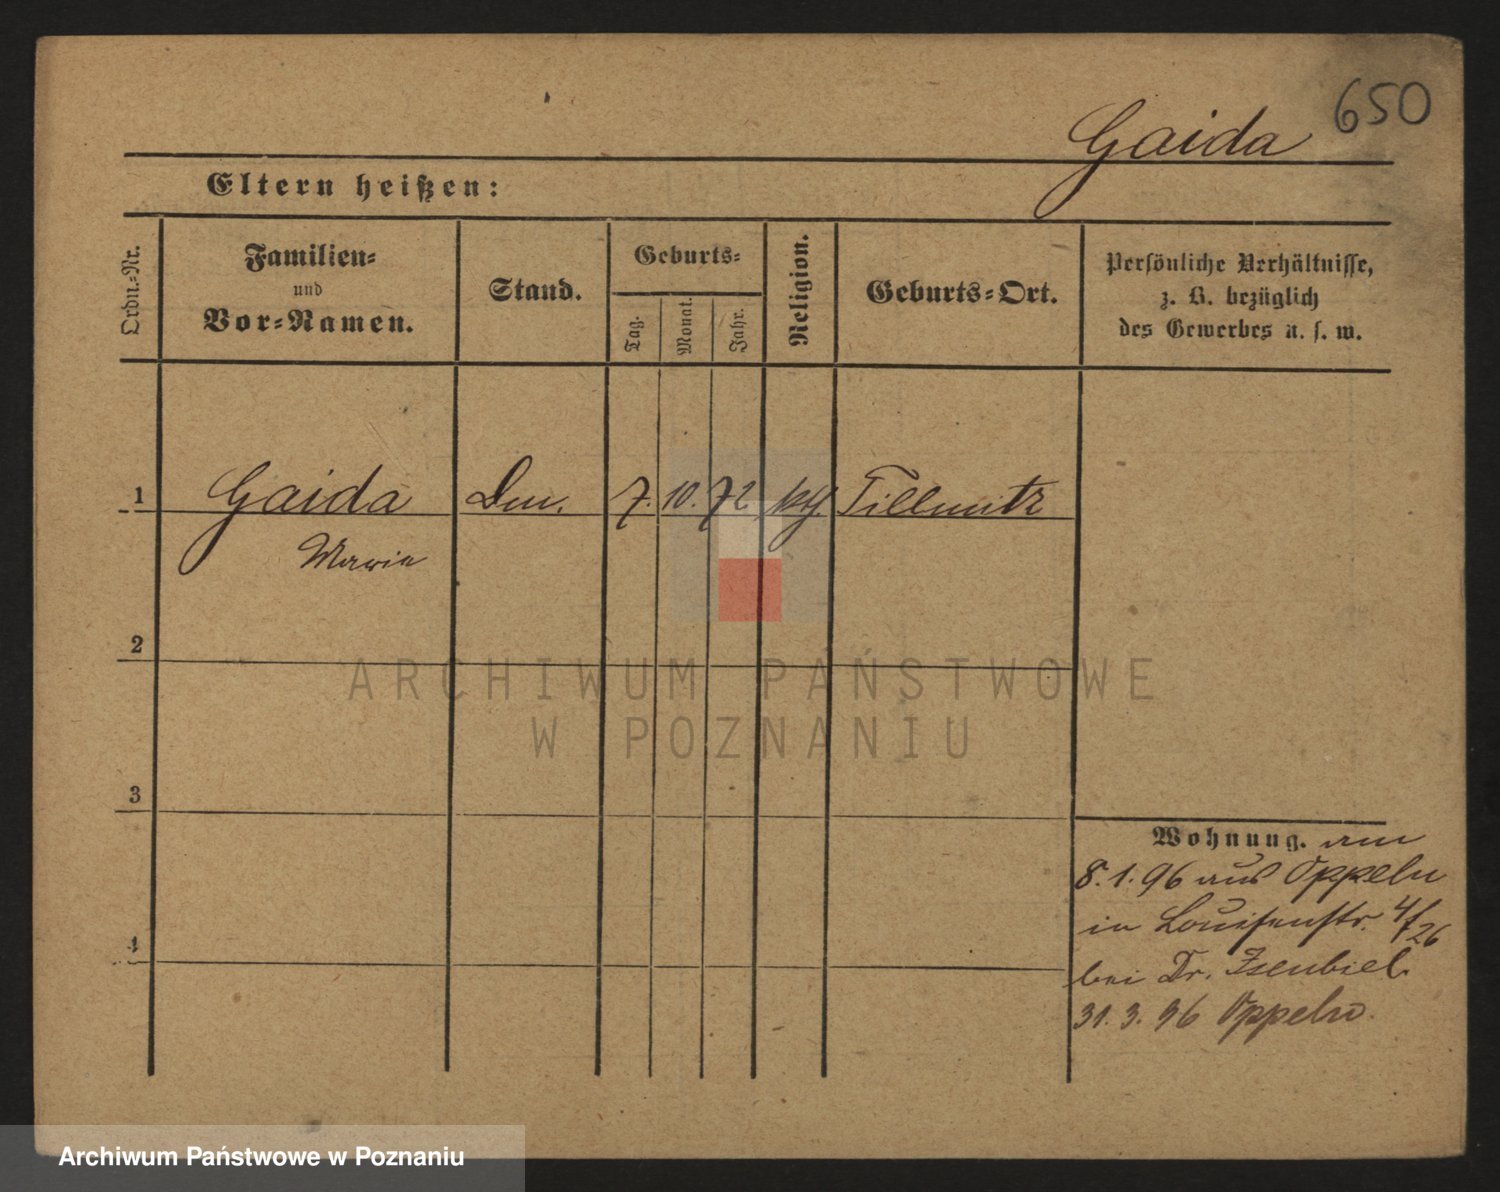 650
Gaida
Eltern heißen:
Ordn.-Nr.
Familien-
und
Vor-Namen.
Stand.
Geburts-
Tag.
Monat.
Jahr.
Religion.
Geburts-Ort.
Persönliche Verhältnisse,
z. B. bezüglich
des Gewerbes u. s. w.
1 Gaida 7. 10. 72 Tillowitz
Marie
2
3
4
Wohnung. am
8.1.96 aus Oppeln
in Louisenstr. 4/26
bei Dr.
31.3.96 Oppeln.
ARCHIWUM PAŃSTWOWE
W POZNANIU
Archiwum Państwowe w Poznaniu